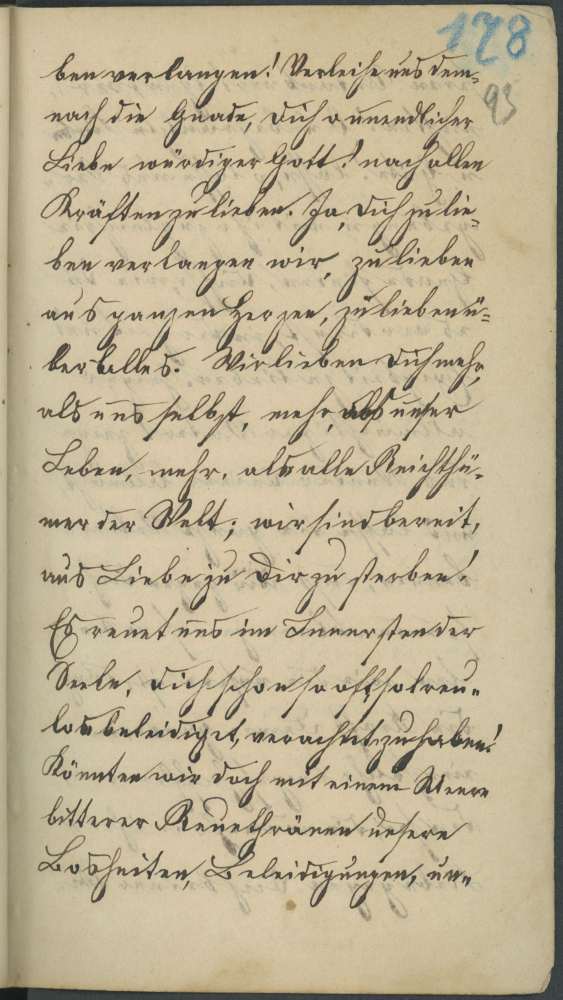 128
93
ben verlangen! Verleihe uns dem-
nach die Gnade, Dich o unendlicher
Liebe würdiger Gott! nach allen
Kräften zu lieben. Ja, Dich zu lie-
ben verlangen wir, zu lieben
aus ganzen Herzen, zu lieben ü-
ber Alles. Wir lieben Dich mehr,
als uns selbst, mehr, als unser
Leben, mehr, als alle Reichthü-
mer der Welt; wir sind bereit,
aus Liebe zu Dir zu sterben!
Es reuet uns im Innersten der
Seele, Dich schon so oft so treu-
los beleidiget, verachtet zu haben!
Könnten wir doch mit einem Meere
bitterer Reuethränen unsere
Bosheiten, Beleidigungen, un-